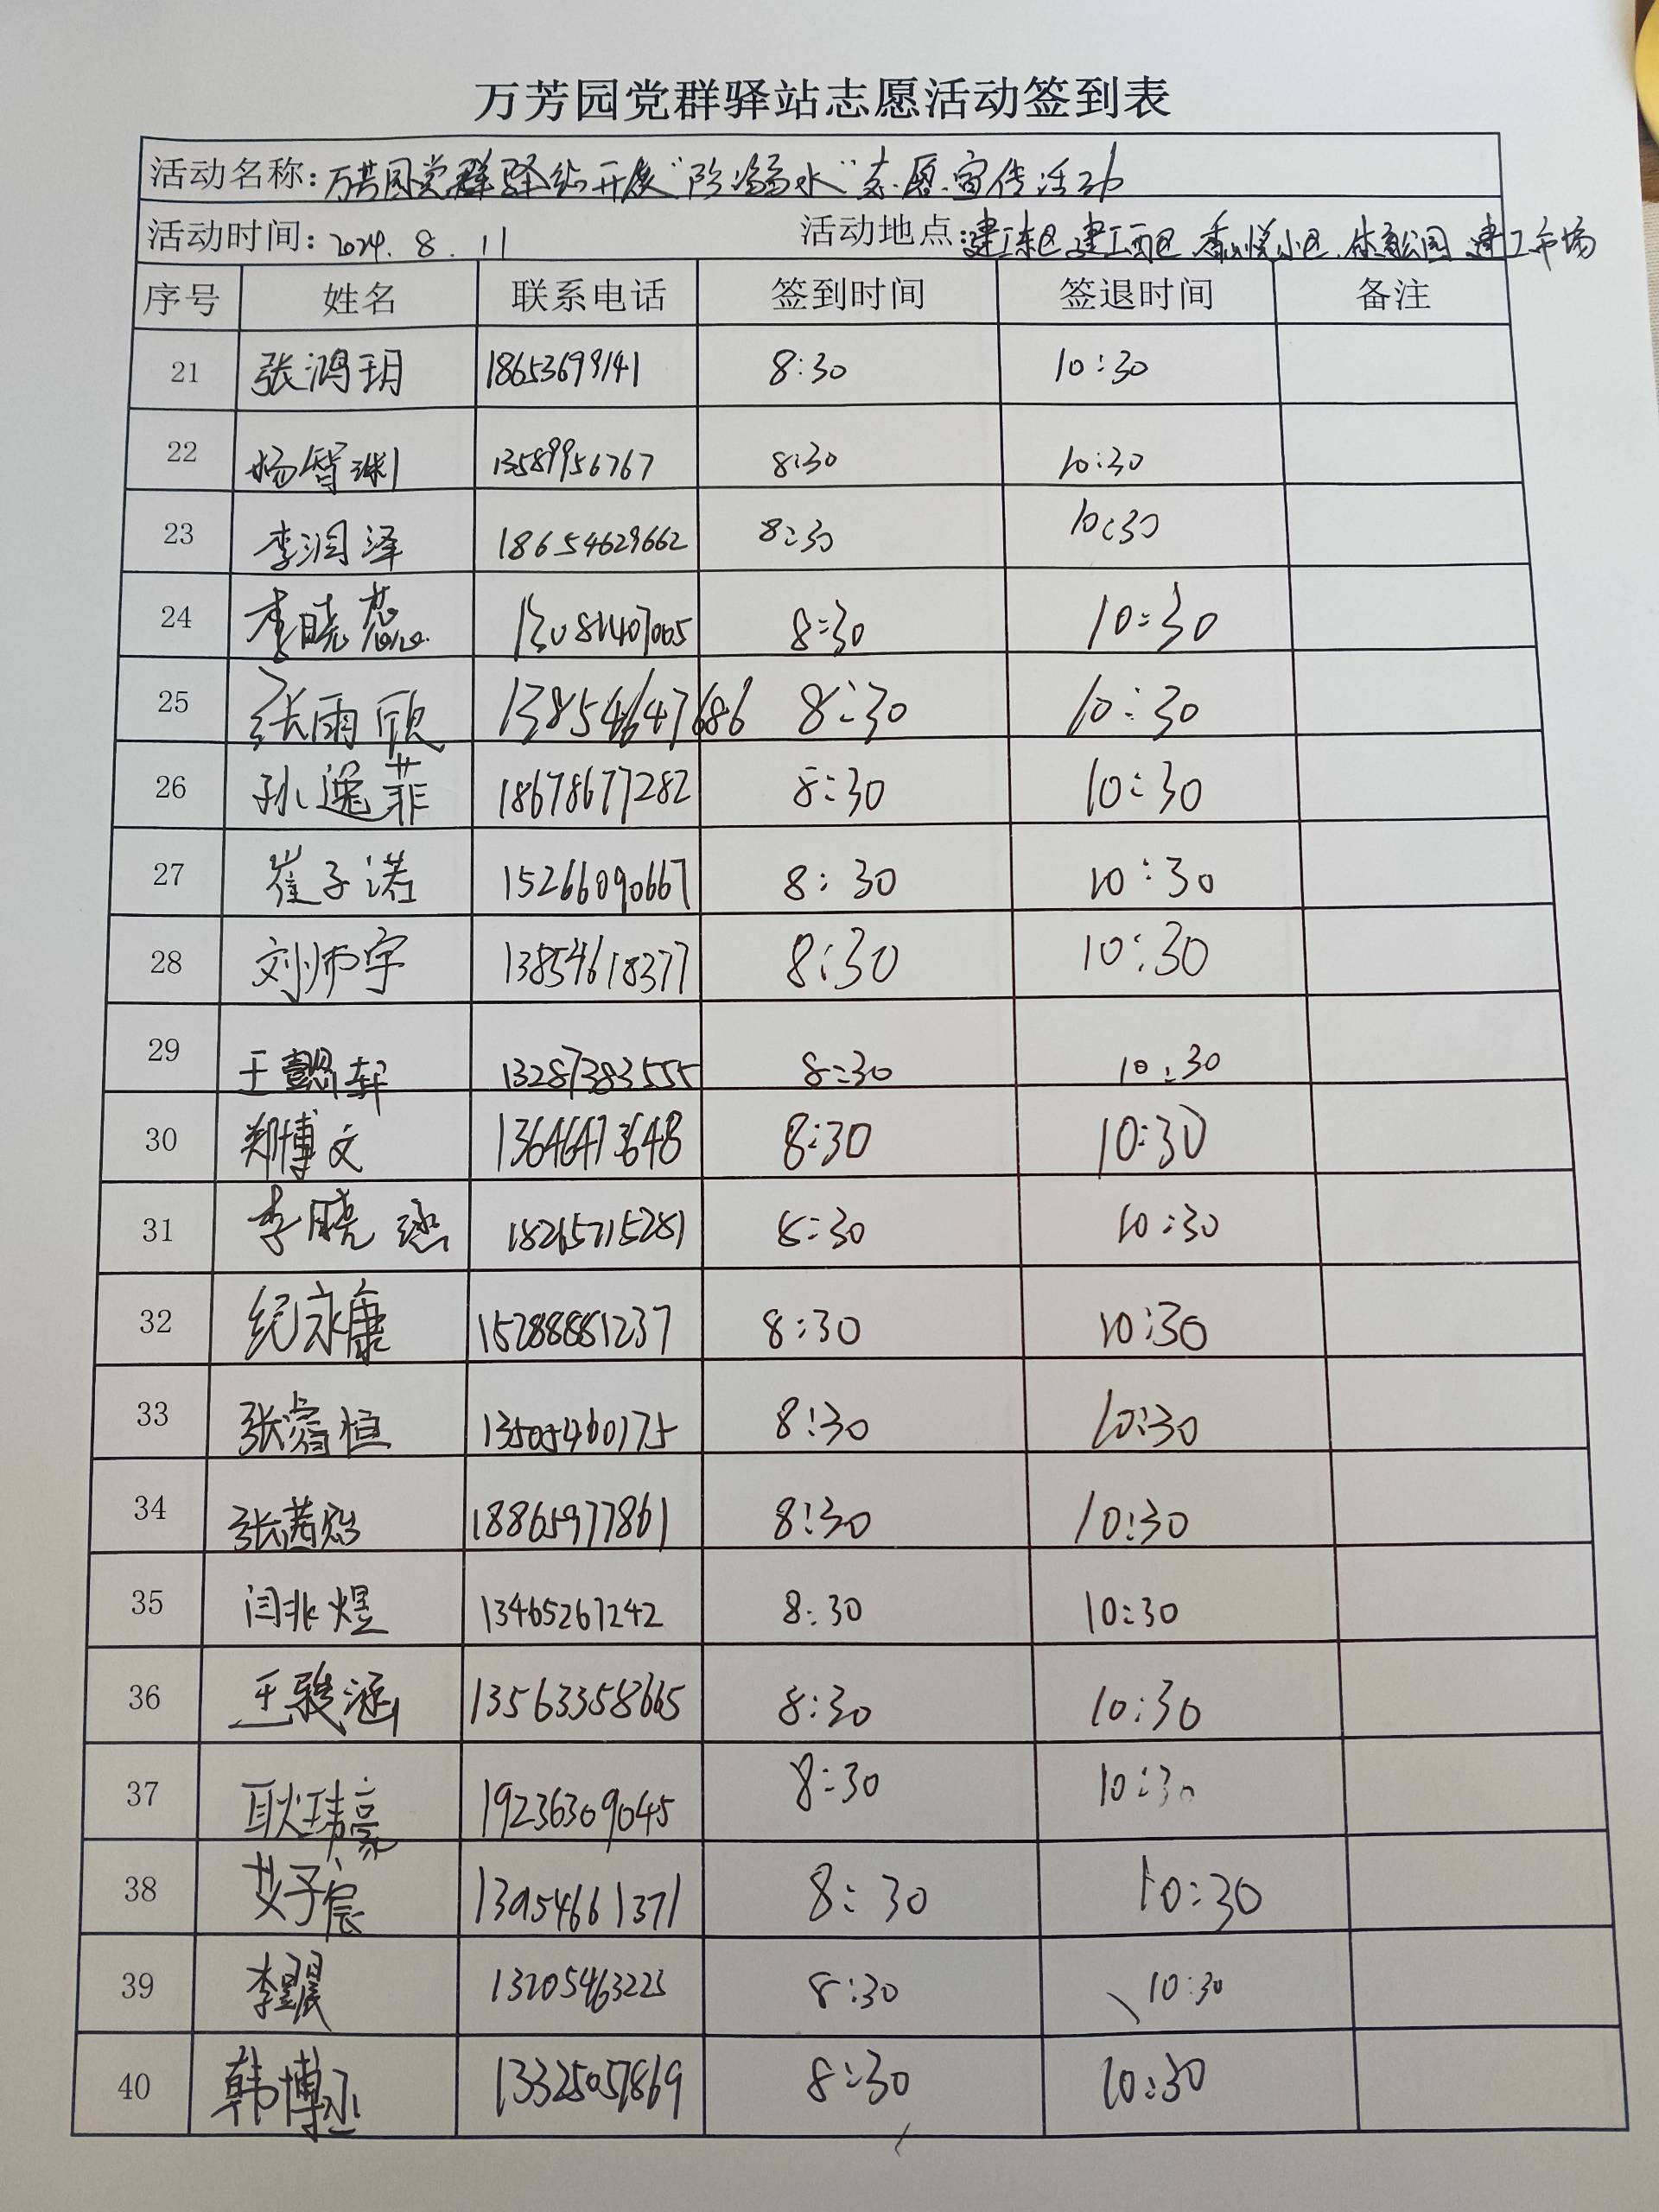 万芳园党群驿站志愿活动签到表
活动名称:万芳园党群驿站开展“防溺水”志愿宣传活动
活动时间:2024.8.11 活动地点:建工东区 建工西区 香悦小区 体育公园 建工市场
序号 姓名 联系电话 签到时间 签退时间 备注
21 张鸿玥 18653699141 8:30 10:30
22 杨智琳 13589956767 8:30 10:30
23 李润泽 18654629662 8:30 10:30
24 李晓蕊 8:30 10:30
25 张雨欣 13854647686 8:30 10:30
26 孙逸菲 18678677282 8:30 10:30
27 崔子诺 15266090667 8:30 10:30
28 刘师宇 13854618377 8:30 10:30
29 王懿轩 13287383555 8:30 10:30
30 郑博文 13646473648 8:30 10:30
31 李晓 18265715281 8:30 10:30
32 纪永康 15288881237 8:30 10:30
33 张睿恒 13505460175 8:30 10:30
34 18865977861 8:30 10:30
35 闫兆煜 13465267242 8:30 10:30
36 王骏涵 13563358665 8:30 10:30
37 耿玮豪 19236309045 8:30 10:30
38 艾子宸 13954661371 8:30 10:30
39 李晨 13205463225 8:30 10:30
40 韩博丞 13325057869 8:30 10:30